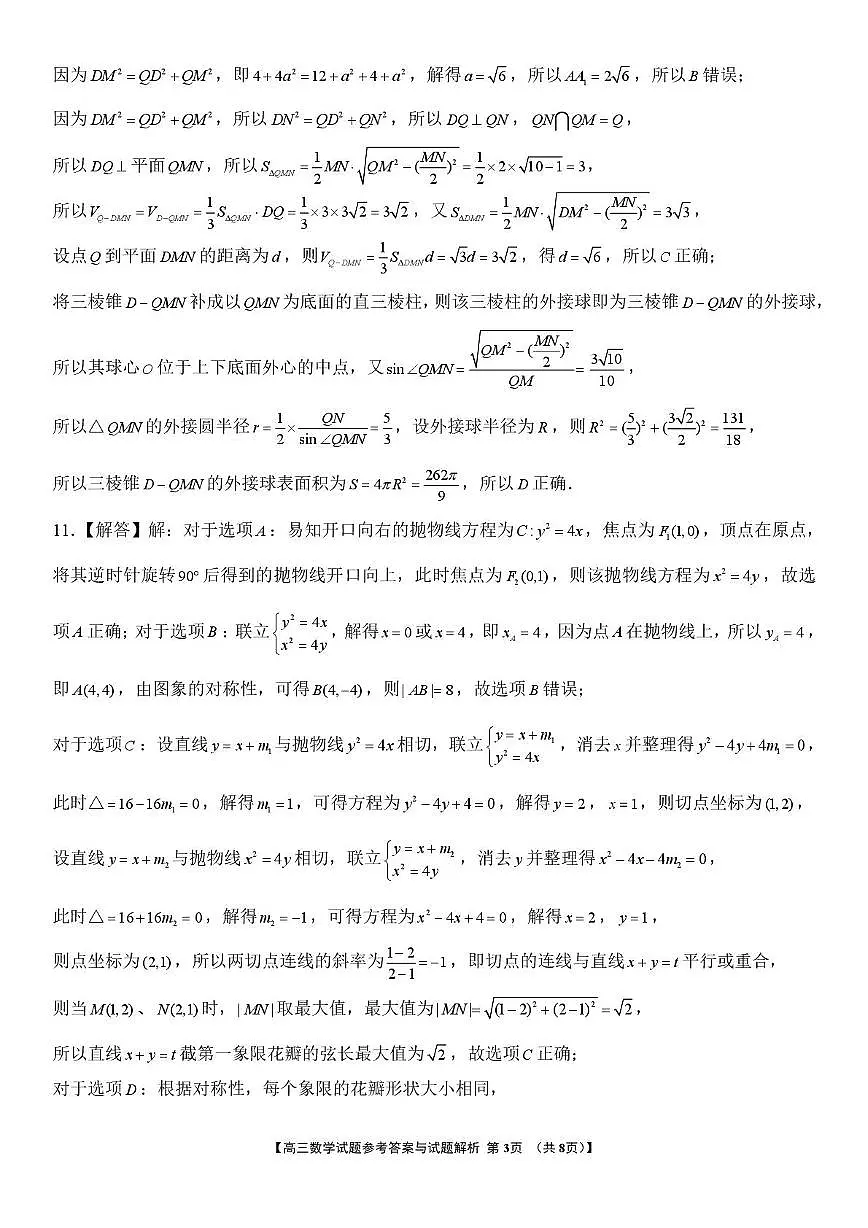 因为 DM² = QD² + QM²，即 4 + 4a² = 12 + a² + 4 + a²，解得 a = √6，所以 AA₁ = 2√6，所以 B 错误；
因为 DM² = QD² + QM²，所以 DN² = QD² + QN²，所以 DQ ⊥ QN，QN⋂QM = Q，
所以 DQ ⊥ 平面 QMN，所以 S_{△QMN} = \frac{1}{2}MN·\sqrt{QM² − (\frac{MN}{2})²} = \frac{1}{2}×2×\sqrt{10−1} = 3，
所以 V_{Q−DMN} = V_{D−QMN} = \frac{1}{3}S_{△QMN}·DQ = \frac{1}{3}×3×3√2 = 3√2，又 S_{△DMN} = \frac{1}{2}MN·\sqrt{DM² − (\frac{MN}{2})²} = 3√3，
设点 Q 到平面 DMN 的距离为 d，则 V_{Q−DMN} = \frac{1}{3}S_{△DMN}d = √3d = 3√2，得 d = √6，所以 C 正确；
将三棱锥 D−QMN 补成以 QMN 为底面的直三棱柱，则该三棱柱的外接球即为三棱锥 D−QMN 的外接球，
所以其球心 O 位于上下底面外心的中点，又 sin∠QMN = \frac{\sqrt{QM² − (\frac{MN}{2})²}}{QM} = \frac{3√10}{10}，
所以△QMN 的外接圆半径 r = \frac{1}{2}×\frac{QN}{sin∠QMN} = \frac{5}{3}，设外接球半径为 R，则 R² = (\frac{5}{3})² + (\frac{3√2}{2})² = \frac{131}{18}，
所以三棱锥 D−QMN 的外接球表面积为 S = 4πR² = \frac{262π}{9}，所以 D 正确．
11．【解答】解：对于选项 A：易知开口向右的抛物线方程为 C : y² = 4x，焦点为 F₁(1,0)，顶点在原点，
将其逆时针旋转 90° 后得到的抛物线开口向上，此时焦点为 F₂(0,1)，则该抛物线方程为 x² = 4y，故选
项 A 正确；对于选项 B：联立 \begin{cases} y² = 4x \\ x² = 4y \end{cases}，解得 x = 0 或 x = 4，即 x_A = 4，因为点 A 在抛物线上，所以 y_A = 4，
即 A(4,4)，由图象的对称性，可得 B(4,−4)，则 |AB| = 8，故选项 B 错误；
对于选项 C：设直线 y = x + m₁ 与抛物线 y² = 4x 相切，联立 \begin{cases} y = x + m₁ \\ y² = 4x \end{cases}，消去 x 并整理得 y² − 4y + 4m₁ = 0，
此时△ = 16 − 16m₁ = 0，解得 m₁ = 1，可得方程为 y² − 4y + 4 = 0，解得 y = 2，x = 1，则切点坐标为 (1,2)，
设直线 y = x + m₂ 与抛物线 x² = 4y 相切，联立 \begin{cases} y = x + m₂ \\ x² = 4y \end{cases}，消去 y 并整理得 x² − 4x − 4m₂ = 0，
此时△ = 16 + 16m₂ = 0，解得 m₂ = −1，可得方程为 x² − 4x + 4 = 0，解得 x = 2，y = 1，
则点坐标为 (2,1)，所以两切点连线的斜率为 \frac{1−2}{2−1} = −1，即切点的连线与直线 x + y = t 平行或重合，
则当 M(1,2)、N(2,1) 时，|MN| 取最大值，最大值为 |MN| = \sqrt{(1−2)² + (2−1)²} = √2，
所以直线 x + y = t 截第一象限花瓣的弦长最大值为 √2，故选项 C 正确；
对于选项 D：根据对称性，每个象限的花瓣形状大小相同，
【高三数学试题参考答案与试题解析 第 3页 （共 8页）】